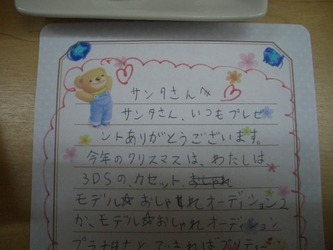 サンタさんへ
サンタさん、いつもプレゼ
ントありがとうございます。
今年のクリスマスは、わたしは
3DSの、カセット、
モデル☆おしゃれオーディション2
か、モデル☆おしゃれオーディション
プラチナ